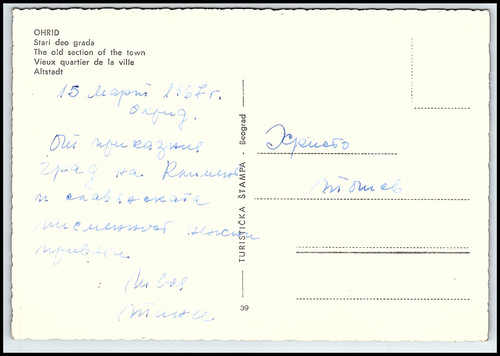 OHRID
Stari deo grada
The old section of the town
Vieux quartier de la ville
Altstadt
15 март 1967 г.
Охрид.
От приказния
град на Климент
и славянската
писменност
Христо
TURISTIČKA ŠTAMPA - Beograd
39